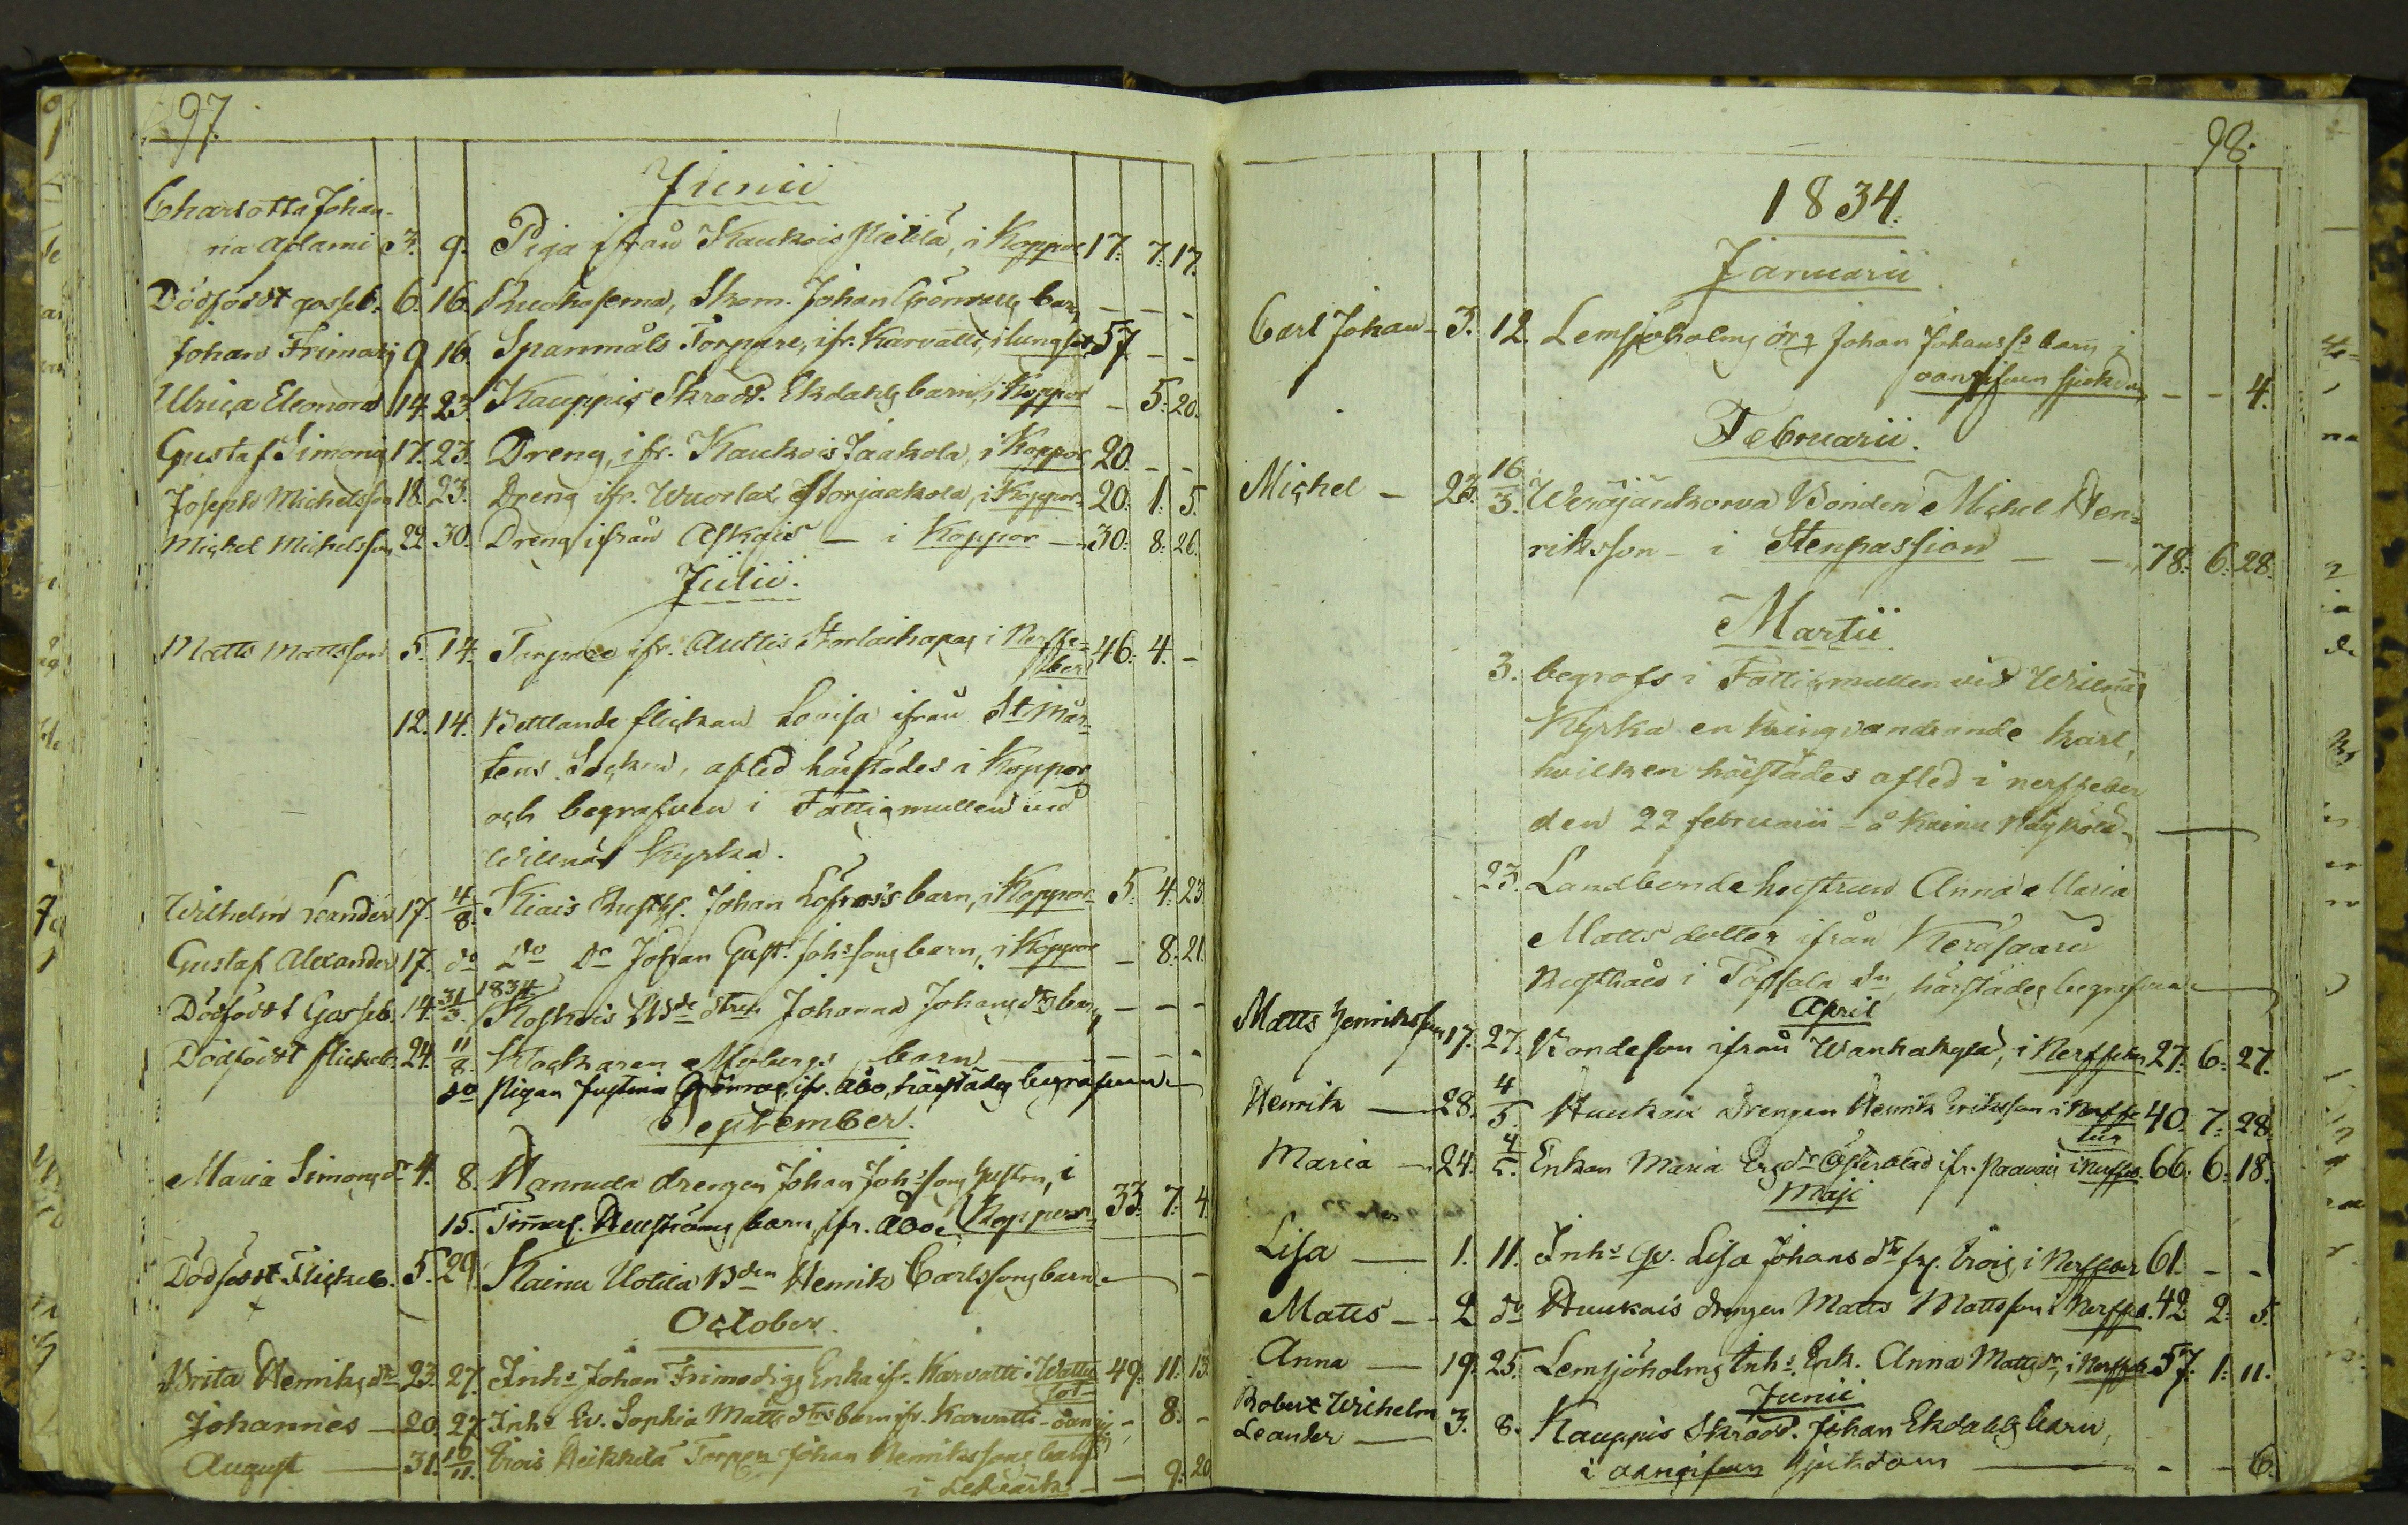 97.
Junii
Charlotta Johan-
na Adami 3. 9. Piga ifrån Kaukois Pietilä, i Koppor 17. 7. 17.
Dödfödt gosseb. 6. 16. Skom. Johan Grönvalls barn - - -
Johan Frimodig 9 16. Spannmåls Torpare, ifr. Karvatti, i lungsot 57 - -
Ulrica Eleonora 14. 23. Kauppis Skradd. Ekdahls barn, i Koppor - 5. 20.
Gustaf Simons 17. 23. Dreng, ifr. Kaukois Jaakola, i Koppor 20. - -
Joseph Michelsson 18. 23. Dreng ifr. Wuorlax Storjaakola, i Koppor 20. 1. 5.
Michel Michelsson 22 30. Dreng ifrån Askais - i Koppor - 30. 8. 26.
Julii.
Matts Mattsson 5. 14. Torpare ifr. Auttis i Nerffe= 46. 4. -
ber
12. 14. Bettlande flickan Lovisa ifrån St Mår-
tens Socken, afled härstädes i Koppor
och begrafven i Fattigmullen vid
Willnäs Kyrka.
Wilhelm Leander 17. 4/8. Kiais Rusth. Johan Löfros's barn, i Koppor 5. 4. 23.
Gustaf Alexander 17. do Do Do Johan Gust. Johssons barn, i Koppor - 8. 21.
Dödfödt Gosseb. 14. 31/3. 1834 Koskois Johanna Johans dr barn - - -
Dödfödt flickeb. 24. 11/8. Klockaren Mobergs barn - - -
do Pigan Justina ifr. Åbo, härstädes begrafven
September.
Maria Simons dr 4. 8. Hannula drengen Johan Johssons hustru, i
Koppor 33. 7. 4.
15. Timmerk. barn, ifr. Åbo
Dödfödt Flickeb. 5. 29. Kainu Uotila Bden Henrik Carlssons barn -
October.
Brita Henriks dr 23. 27. Inhs Johan Frimodigs Enka ifr. Karvatti i Wattu 49. 11. 13.
sot
Johannes - 20. 27. Inhs Sophia Matts drs barn ifr. Karvatti - - 8. -
August - 31. 10/11. Trois Heikkilä Torpen Johan Henrikssons barn
- 9. 20
98.
1834.
Januarii
Carl Johan - 3. 12. Lemsjöholms Johan Johanss. barn i
oangifven sjukdom - - 4.
Februarii.
Michel - 23. 16/3. Weräjänkorva Bonden Michel Hen=
riksson - i Stenpassion - - 78. 6. 28.
Martii
3. begrofs i Fattigmullen vid Willnäs
Kyrka en kringvandrande karl,
hvilken härstädes afled i nerffeber
den 22 februarii - å Kainu
23. Landbonde hustrun Anna Maria
Matts dotter ifrån
Rusthåll i Töfsala Sn, härstädes begrafven
April
Matts Henriksson 17. 27. Bondeson ifrån Wanhakylä, i Nerffeber 27. 6. 27.
Henrik - 28. 4/5. drengen Henrik Eriksson i Nerffe 40. 7. 28.
ber
Maria - 24. 4/5. Enkan Maria Ers dr Österblad ifr. i Nerffeb. 66. 6. 18.
Maji
Lisa - 1. 11. Inhs Qv. Lisa Johans dr fr. Trois, i Nerffeber 61. - -
Matts - 2 do drengen Matts Mattsson i Nerffeb. 42 2. 5.
Anna - 19. 25. Lemsjöholms Inhs. Enk. Anna Matts dr, i Nerffeb 57. 1. 11.
Junii
Robert Wilhelm
Leander - 3. 8. Kauppis Skradd. Johan Ekdahls barn,
i oangifven sjukdom - - - 6.